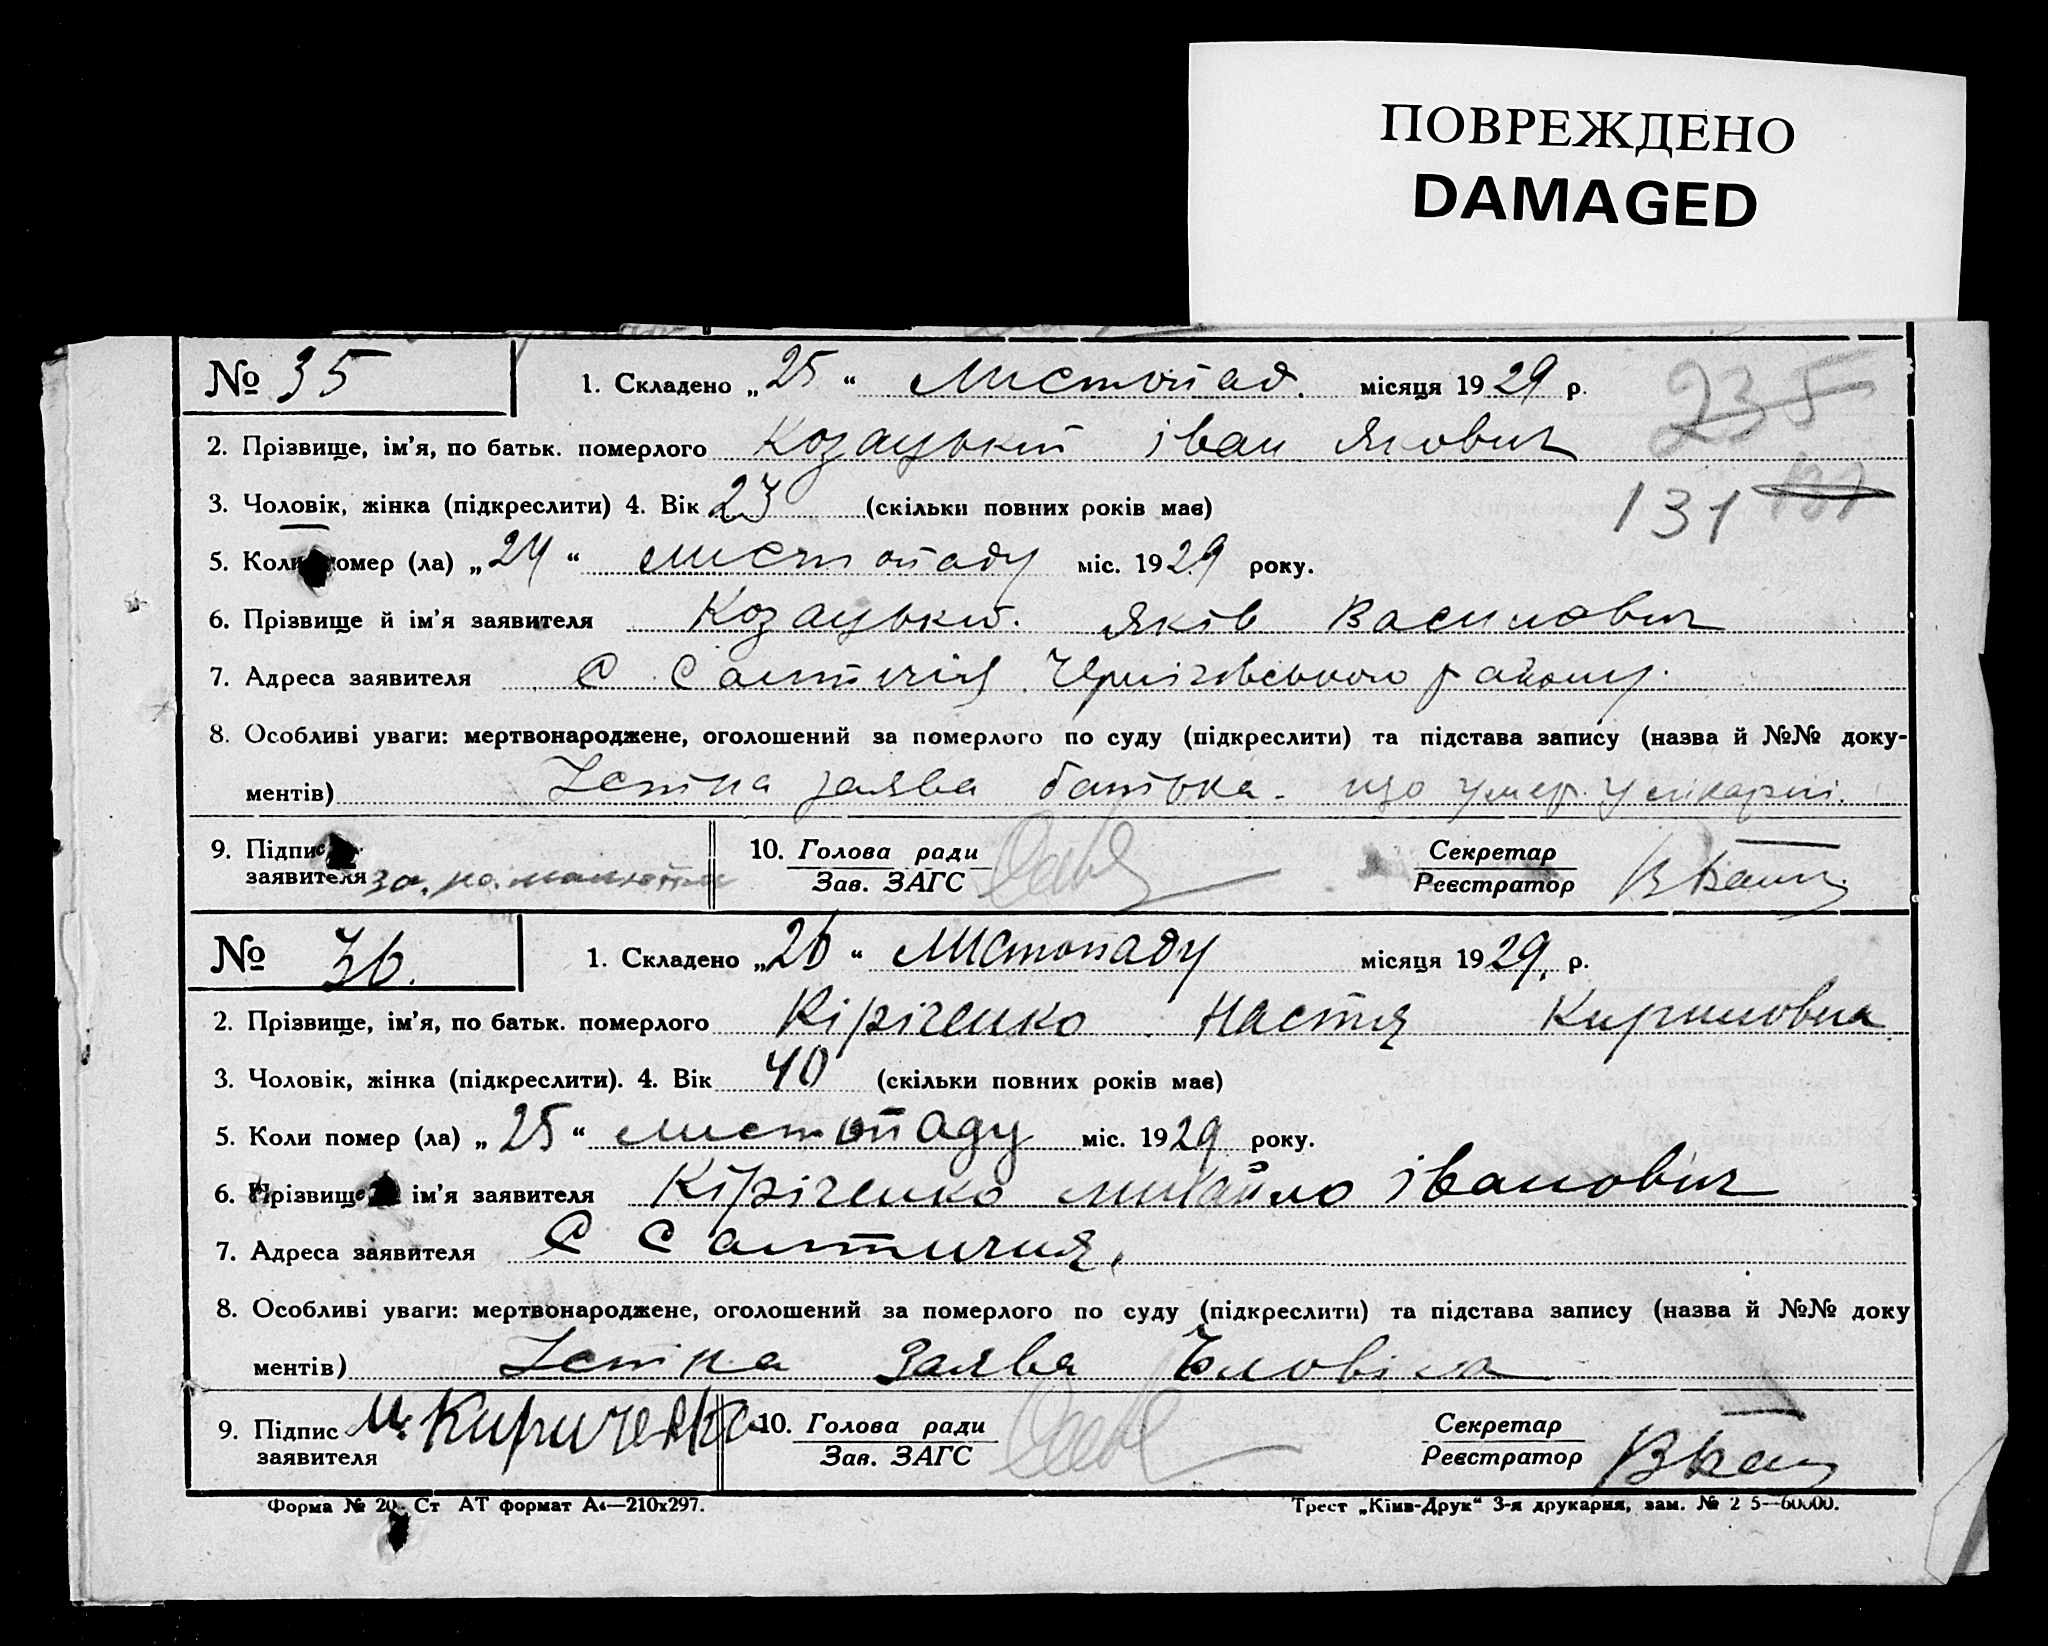 ПОВРЕЖДЕНО
DAMAGED
№ 35 1. Складено „25“ Листопад. місяця 1929 р. 235
2. Прізвище, ім'я, по батьк. померлого Козацький іван Якович
3. Чоловік, жінка (підкреслити) 4. Вік 23 (скільки повних років має) 131 131
5. Коли помер (ла) „24“ листопаду міс. 1929 року.
6. Прізвище й ім'я заявителя Козацький. Яків Василович
7. Адреса заявителя С Салтичія Чернігівського району.
8. Особливі уваги: мертвонароджене, оголошений за померлого по суду (підкреслити) та підстава запису (назва й №№ доку-
ментів) Устна заява батька. що умер. у лікарні.
9. Підпис 10. Голова ради Секретар
заявителя за. Зав. ЗАГС Реєстратор
№ 36. 1. Складено „26“ листопаду місяця 1929. р.
2. Прізвище, ім'я, по батьк. померлого Кіріченко Настя Кириловна
3. Чоловік, жінка (підкреслити). 4. Вік 40 (скільки повних років має)
5. Коли помер (ла) „25“ листопаду міс. 1929 року.
6. Прізвище й ім'я заявителя Кіріченко михайло івановіч
7. Адреса заявителя С Салтичия.
8. Особливі уваги: мертвонароджене, оголошений за померлого по суду (підкреслити) та підстава запису (назва й №№ доку
ментів) Устна Заява Чловіка
9. Підпис М. Кириченко 10. Голова ради Секретар
заявителя Зав. ЗАГС Реєстратор
Форма № 20. Ст АТ формат А4—210х297. Трест „Київ-Друк“ 3-я друкарня, зам. № 2 5—60000.